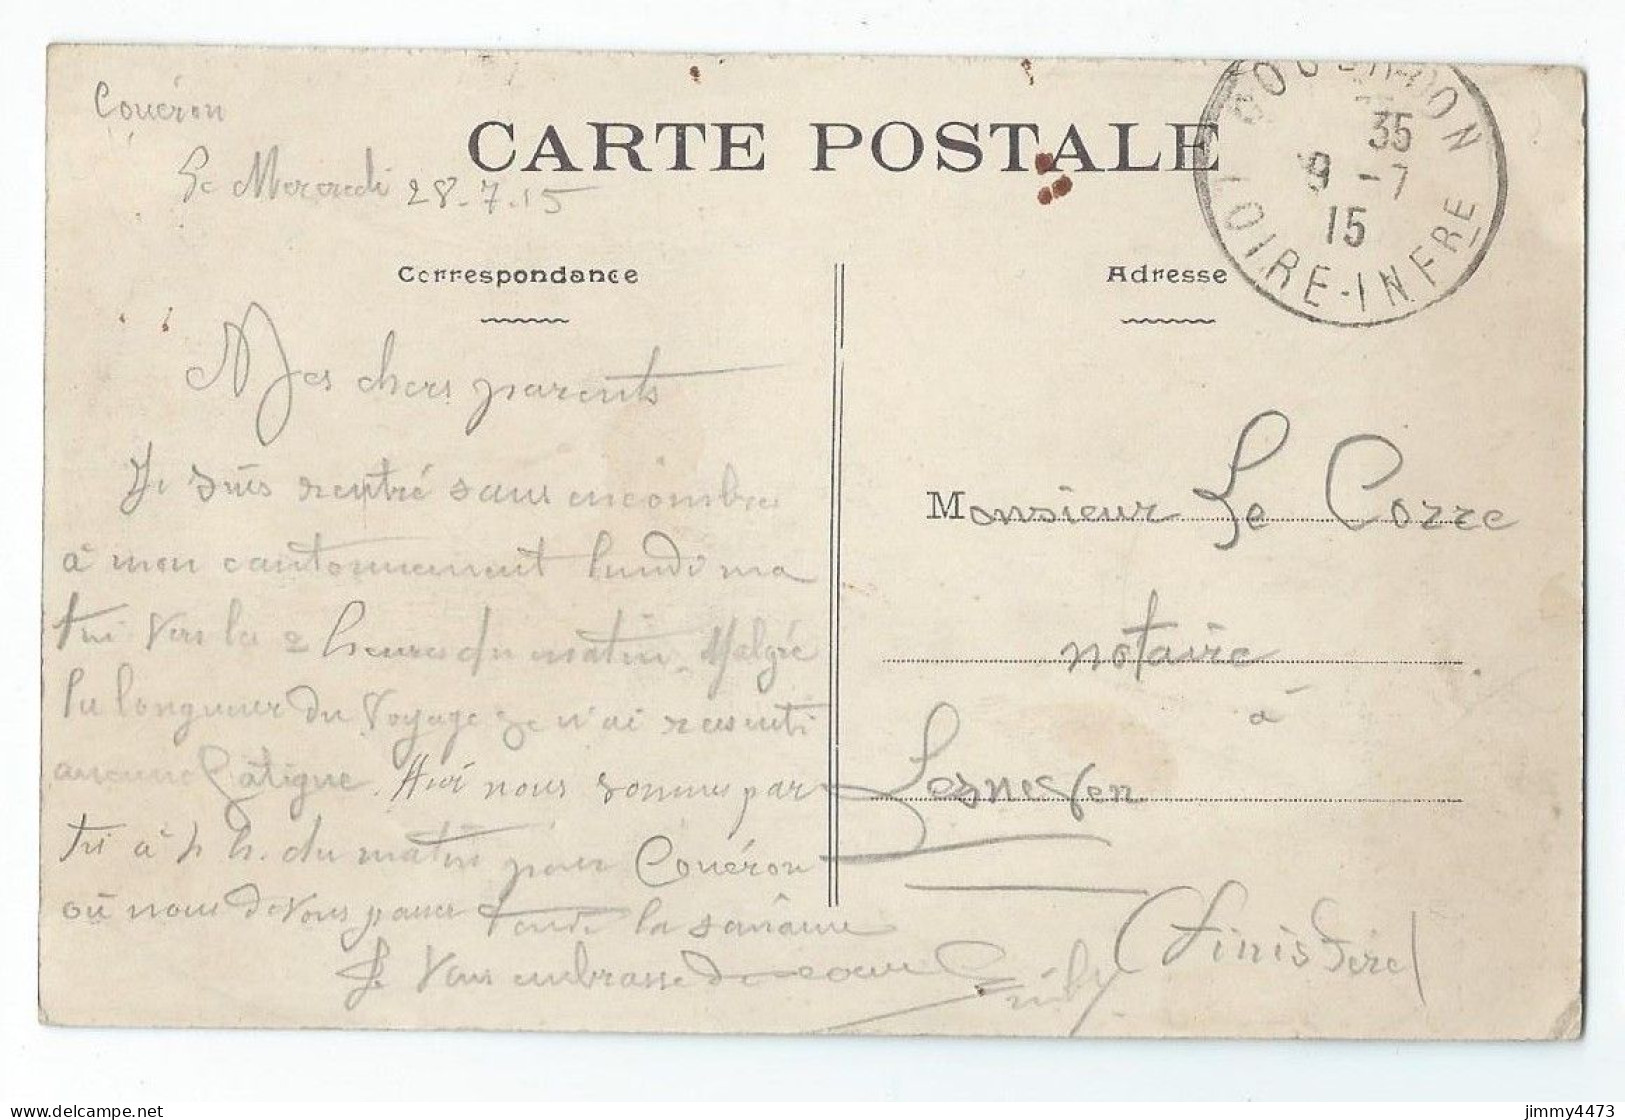 Couéron
Le Mercredi 28.7.15
CARTE POSTALE
35
9 -7
15
LOIRE-INFRE
Correspondance
Adresse
Mes chers parents
Je suis rentré sans encombre
à mon cantonnement lundi ma
tin vers les 2 heures du matin. Malgré
la longueur du voyage je n'ai ressenti
aucune fatigue. Hier nous sommes par
ti à 4 h. du matin pour Couéron
où nous devons passer toute la semaine
Je vous embrasse de coeur
Monsieur Le Corre
notaire
à
Lesneven
(Finistère)
jimmy4473